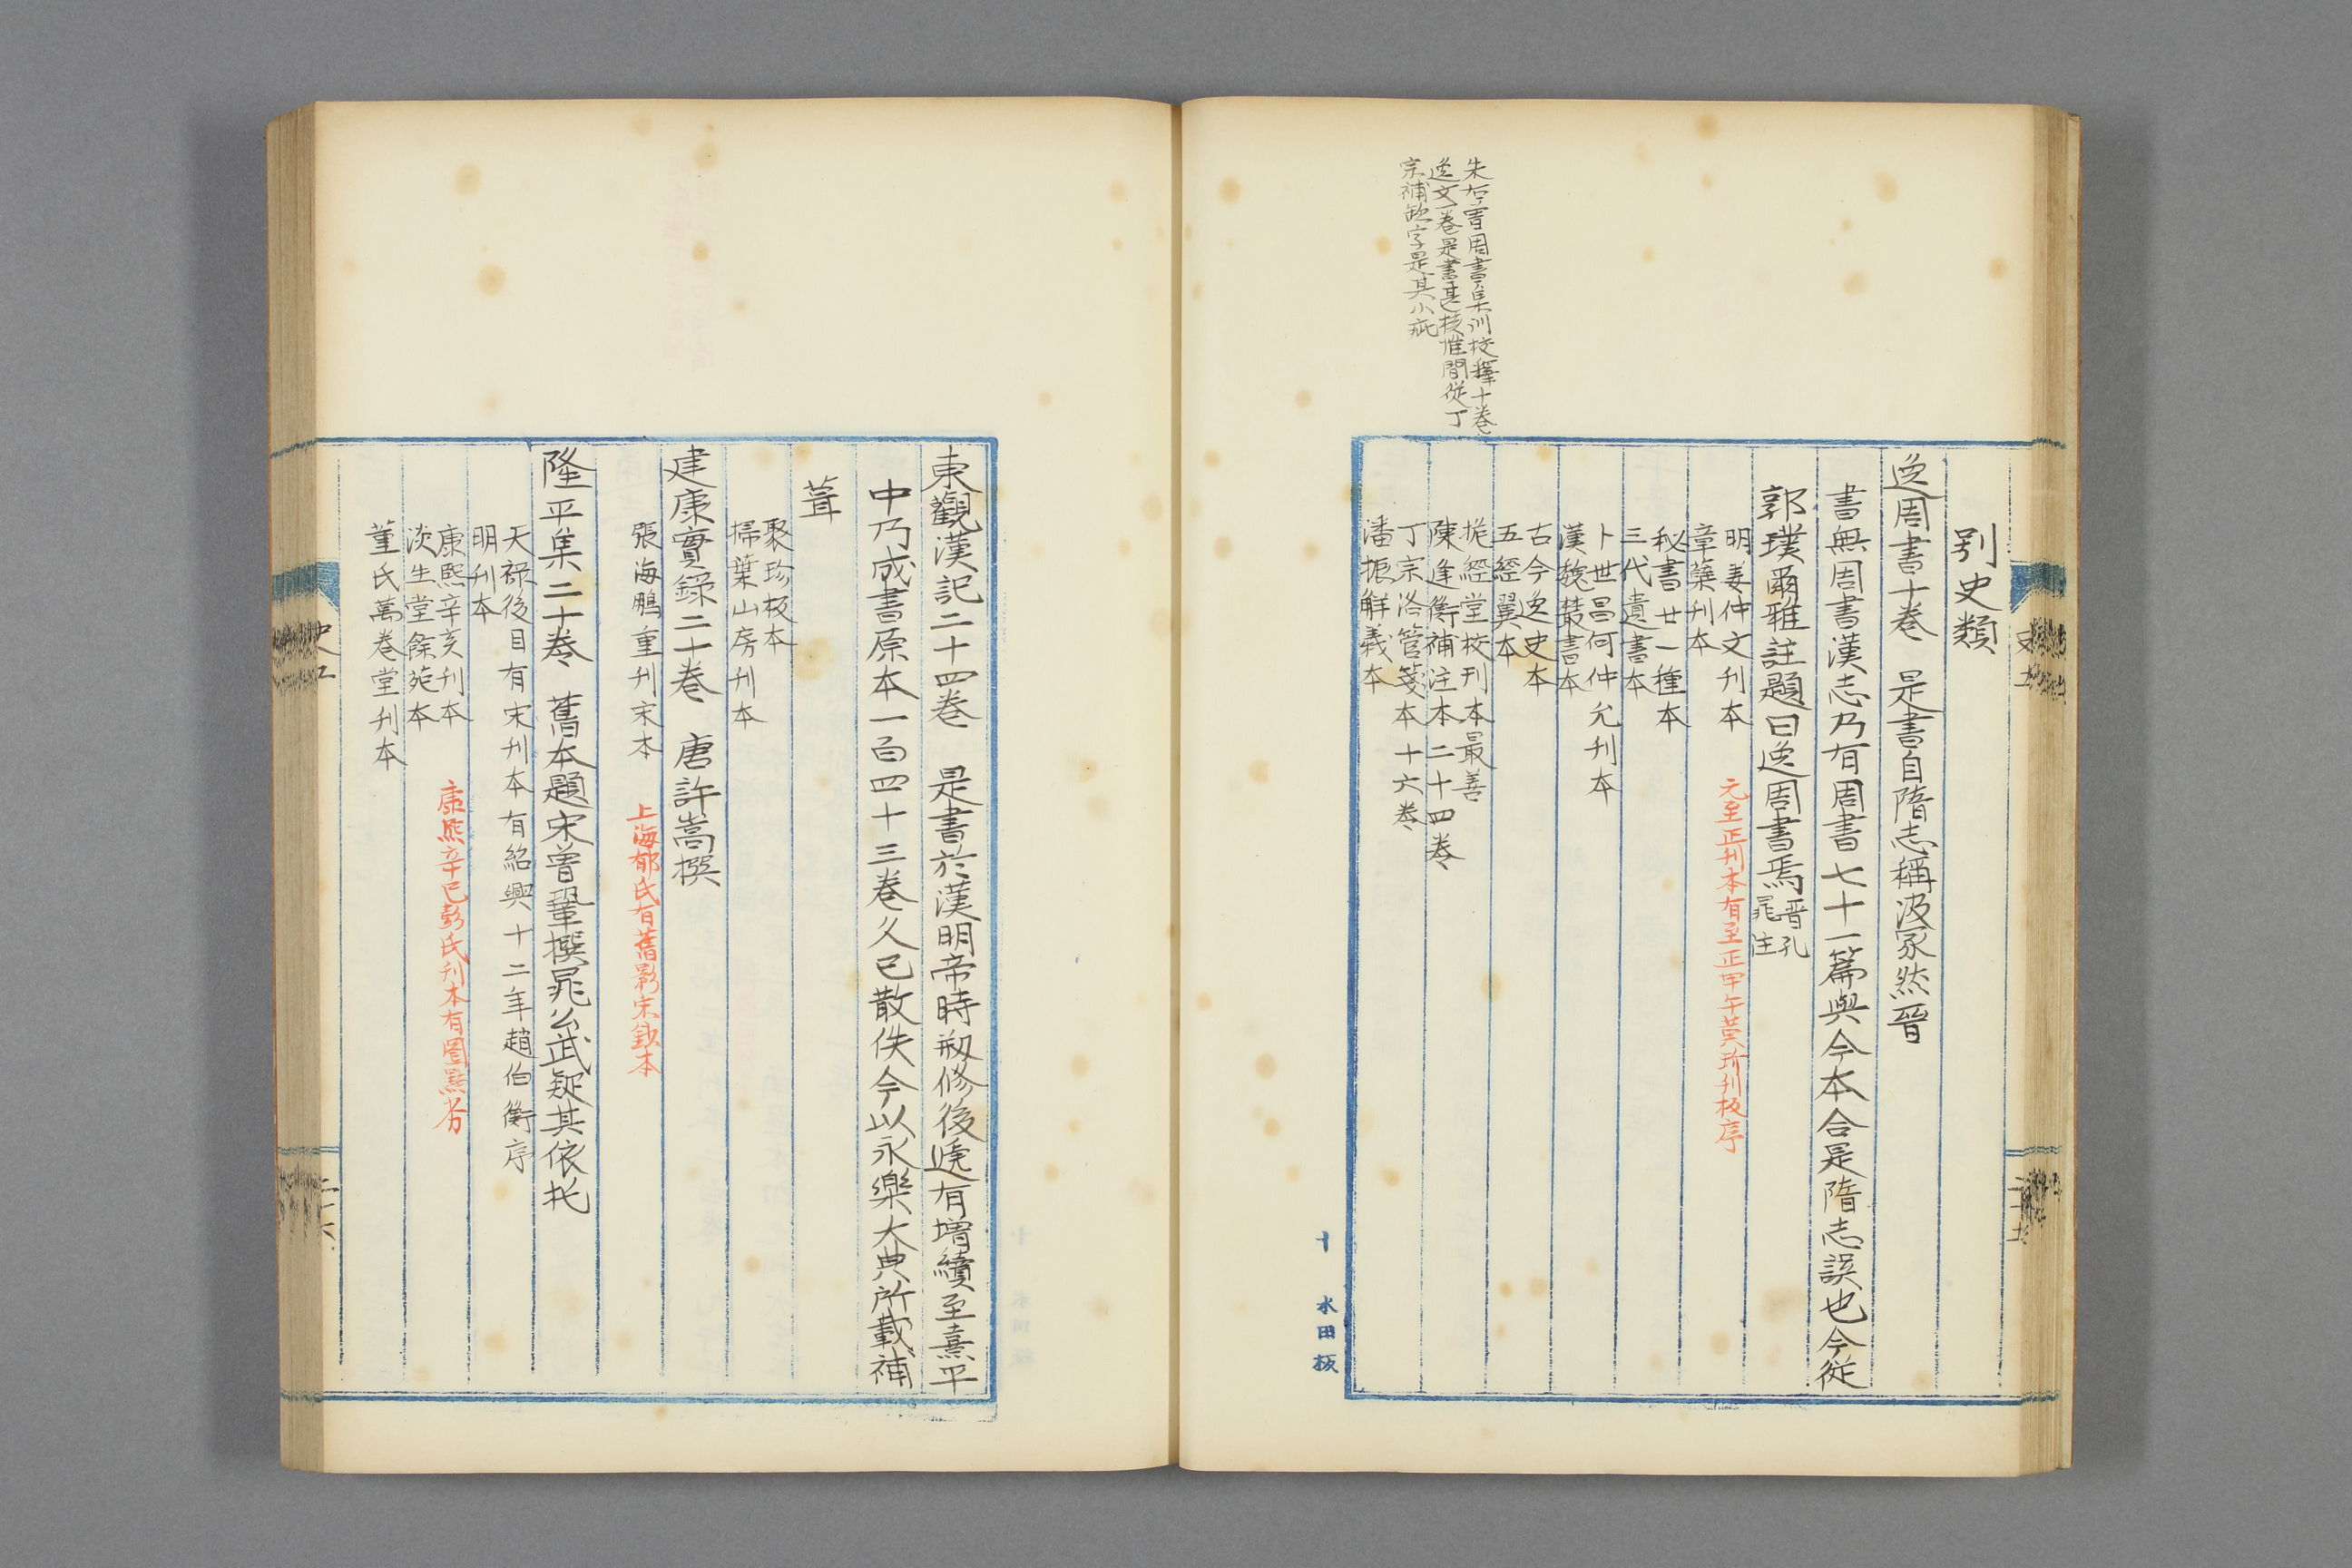 朱右曽周書集訓校釋十卷
逸文一卷是書甚核惟間從丁
宗補缺字是其小疵
別史類
逸周書十卷　是書自隋志稱汲冢然晉
書無周書漢志乃有周書七十一篇與今本合是隋志誤也今從
郭璞爾雅註題曰逸周書焉晋孔
晁注
明姜仲文刊本　元至正刊本有至正甲午黄玠刊板序
章蘗刊本
秘書廿一種本
三代遺書本
卜世昌何仲允刊本
漢魏叢書本
古今逸史本
五經翼本
抱經堂校刊本最善
陳逢衡補注本二十四卷
丁宗洛管箋本十六卷
潘振解義本
十　水田板
東觀漢記二十四卷　是書於漢明帝時剏修後遞有增續至熹平
中乃成書原本一百四十三卷久已散佚今以永樂大典所載補
葺
聚珍板本
掃葉山房刊本
建康實錄二十卷　唐許嵩撰
張海鵬重刊宋本　上海郁氏有舊影宋鈔本
隆平集二十卷　舊本題宋曽鞏撰晁公武疑其依托
天禄後目有宋刊本有紹興十二年趙伯衛序
明刊本
康熙辛亥刊本　康熙辛巳彭氏刊本有圈點劣
淡生堂餘苑本
董氏萬卷堂刊本
史五
二十六